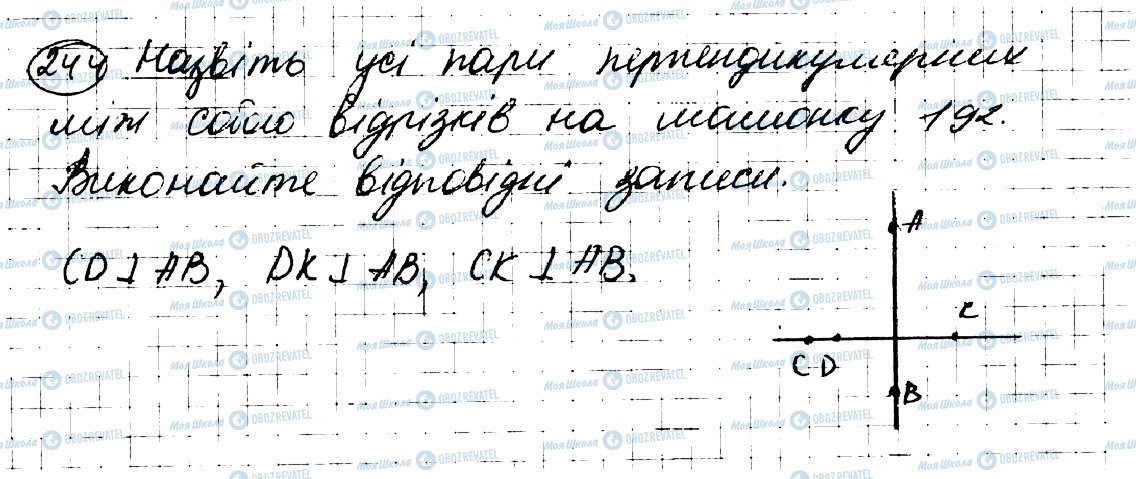 244 Назвіть усі пари перпендикулярних
між собою відрізків на малюнку 192.
Виконайте відповідні записи.
CD ⊥ AB, DK ⊥ AB, CK ⊥ AB.
A
C D
B
МояШкола OBOZREVATEL